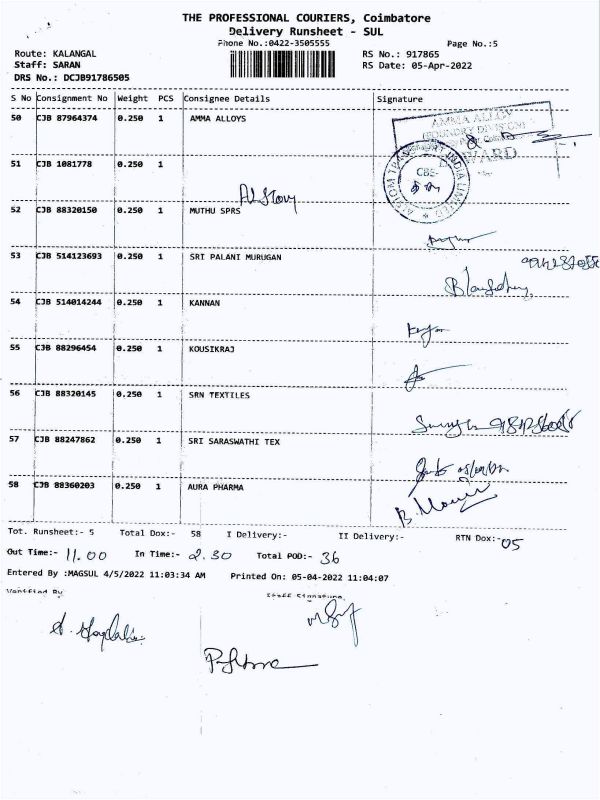 THE PROFESSIONAL COURIERS, Coimbatore
Delivery Runsheet - SUL
Phone No.:0422-3505555
Page No.:5
Route: KALANGAL
RS No.: 917865
Staff: SARAN
RS Date: 05-Apr-2022
DRS No.: DCJB91786505
S No Consignment No Weight PCS Consignee Details Signature
50 CJB 87964374 0.250 1 AMMA ALLOYS
AMMA ALLOY
51 CJB 1081778 0.250 1
CBE-
52 CJB 88320150 0.250 1 MUTHU SPRS
53 CJB 514123693 0.250 1 SRI PALANI MURUGAN
54 CJB 514014244 0.250 1 KANNAN
55 CJB 88296454 0.250 1 KOUSIKRAJ
56 CJB 88320145 0.250 1 SRN TEXTILES
57 CJB 88247862 0.250 1 SRI SARASWATHI TEX
58 CJB 88360203 0.250 1 AURA PHARMA
Tot. Runsheet:- 5 Total Dox:- 58 I Delivery:- II Delivery:- RTN Dox:- 05
Out Time:- 11.00 In Time:- 2.30 Total POD:- 36
Entered By :MAGSUL 4/5/2022 11:03:34 AM Printed On: 05-04-2022 11:04:07
Verified By Staff Signature